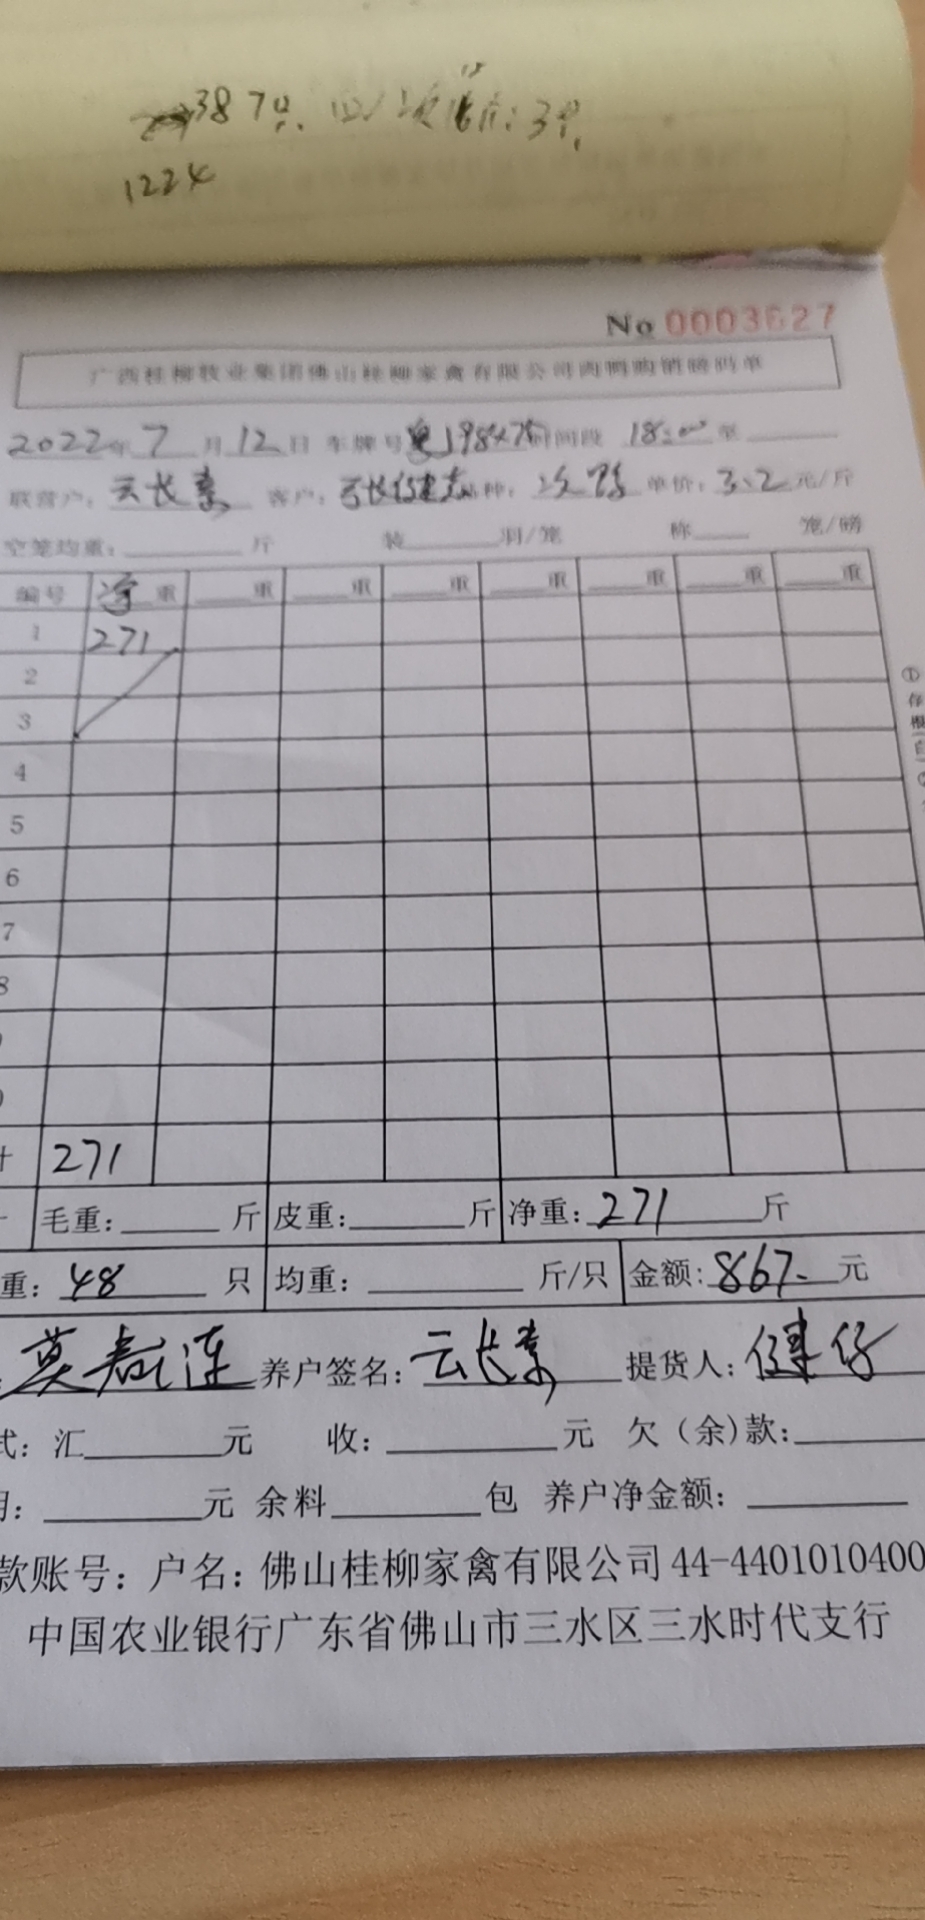 387只
1224
No 0003627
广西桂柳牧业集团佛山桂柳家禽有限公司肉鸭购销磅码单
2022年 7 月 12 日 车牌号 时间段 18:00 至
联营户: 云长素 客户: 品种: 次鸭 单价: 3.2 元/斤
空笼均重: 斤 装 羽/笼 称 笼/磅
编号 净重 重 重 重 重 重 重 重
1 271
2
3
4
5
6
7
8
计 271
毛重: 斤 皮重: 斤 净重: 271 斤
重: 48 只 均重: 斤/只 金额: 867. 元
养户签名: 云长素 提货人: 健仔
式: 汇 元 收: 元 欠(余)款:
元 余料 包 养户净金额:
款账号: 户名: 佛山桂柳家禽有限公司 44-4401010400
中国农业银行广东省佛山市三水区三水时代支行
①存根(白)